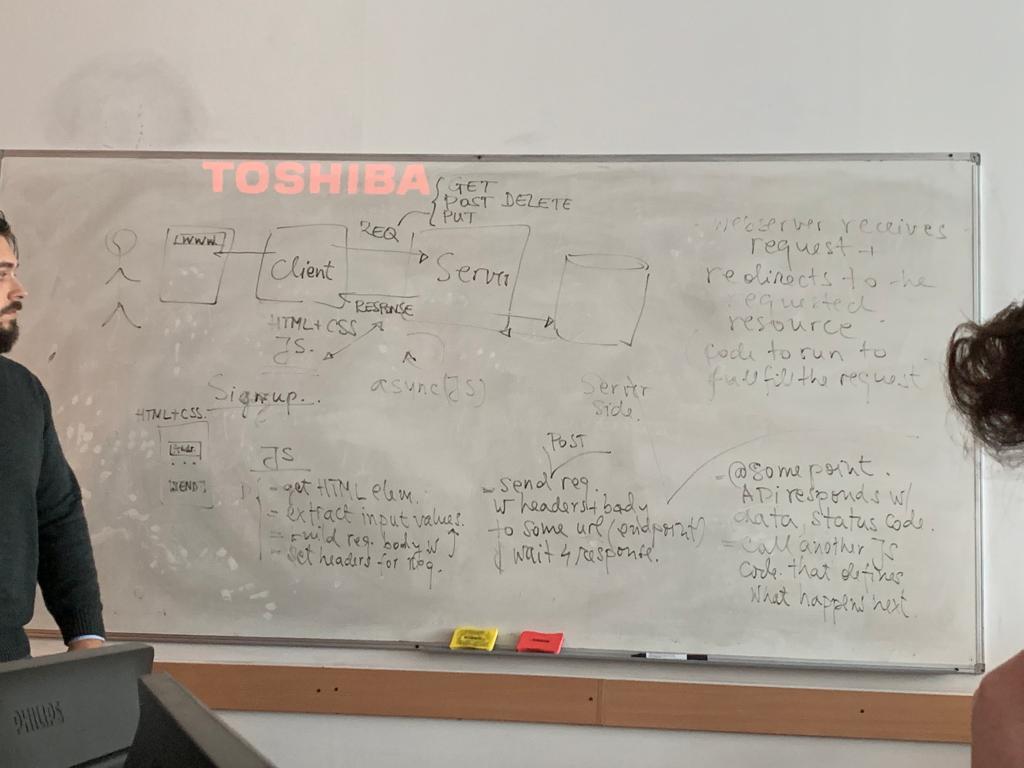 TOSHIBA
GET
POST DELETE
PUT
REQ
WWW
Client
Server
RESPONSE
HTML+CSS
JS.
async(JS)
Server
Side
Webserver receives
request +
redirects to the
requested
resource
(code to run to
fullfill the request
Signup..
HTML+CSS.
SEND
JS
- get HTML elem.
= extract input values.
= build req. body w
= set headers for req.
POST
- send req.
w headers + body
to some url (endpoint)
& wait 4 response.
- @some point.
APi responds w/
data, status code.
= call another JS
code that defines
what happens next
PHILIPS